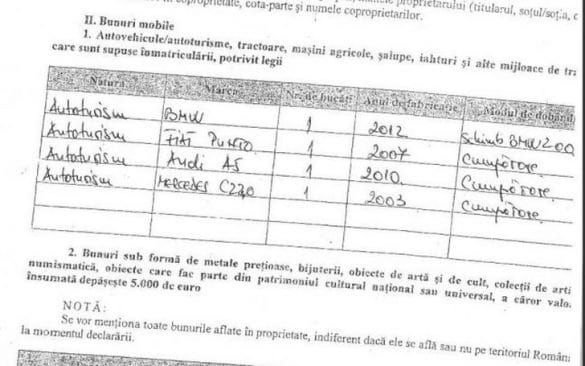 în coproprietate, cota-parte și numele coproprietarilor.
proprietarului (titularul, soțul/soția, c
II. Bunuri mobile
1. Autovehicule/autoturisme, tractoare, mașini agricole, șalupe, iahturi și alte mijloace de tra
care sunt supuse înmatriculării, potrivit legii
Natura Marca Nr. de bucăți Anul de fabricație Modul de dobând
Autoturism BMW 1 2012 Schimb BMW 200
Autoturism FIAT 1 2007 Cumpărare
Autoturism Audi A5 1 2010 Cumpărare
Autoturism MERCEDES C220 1 2003 Cumpărare
2. Bunuri sub formă de metale prețioase, bijuterii, obiecte de artă și de cult, colecții de artă
numismatică, obiecte care fac parte din patrimoniul cultural național sau universal, a căror valo.
însumată depășește 5.000 de euro
NOTĂ:
Se vor menționa toate bunurile aflate în proprietate, indiferent dacă ele se află sau nu pe teritoriul Români
la momentul declarării.